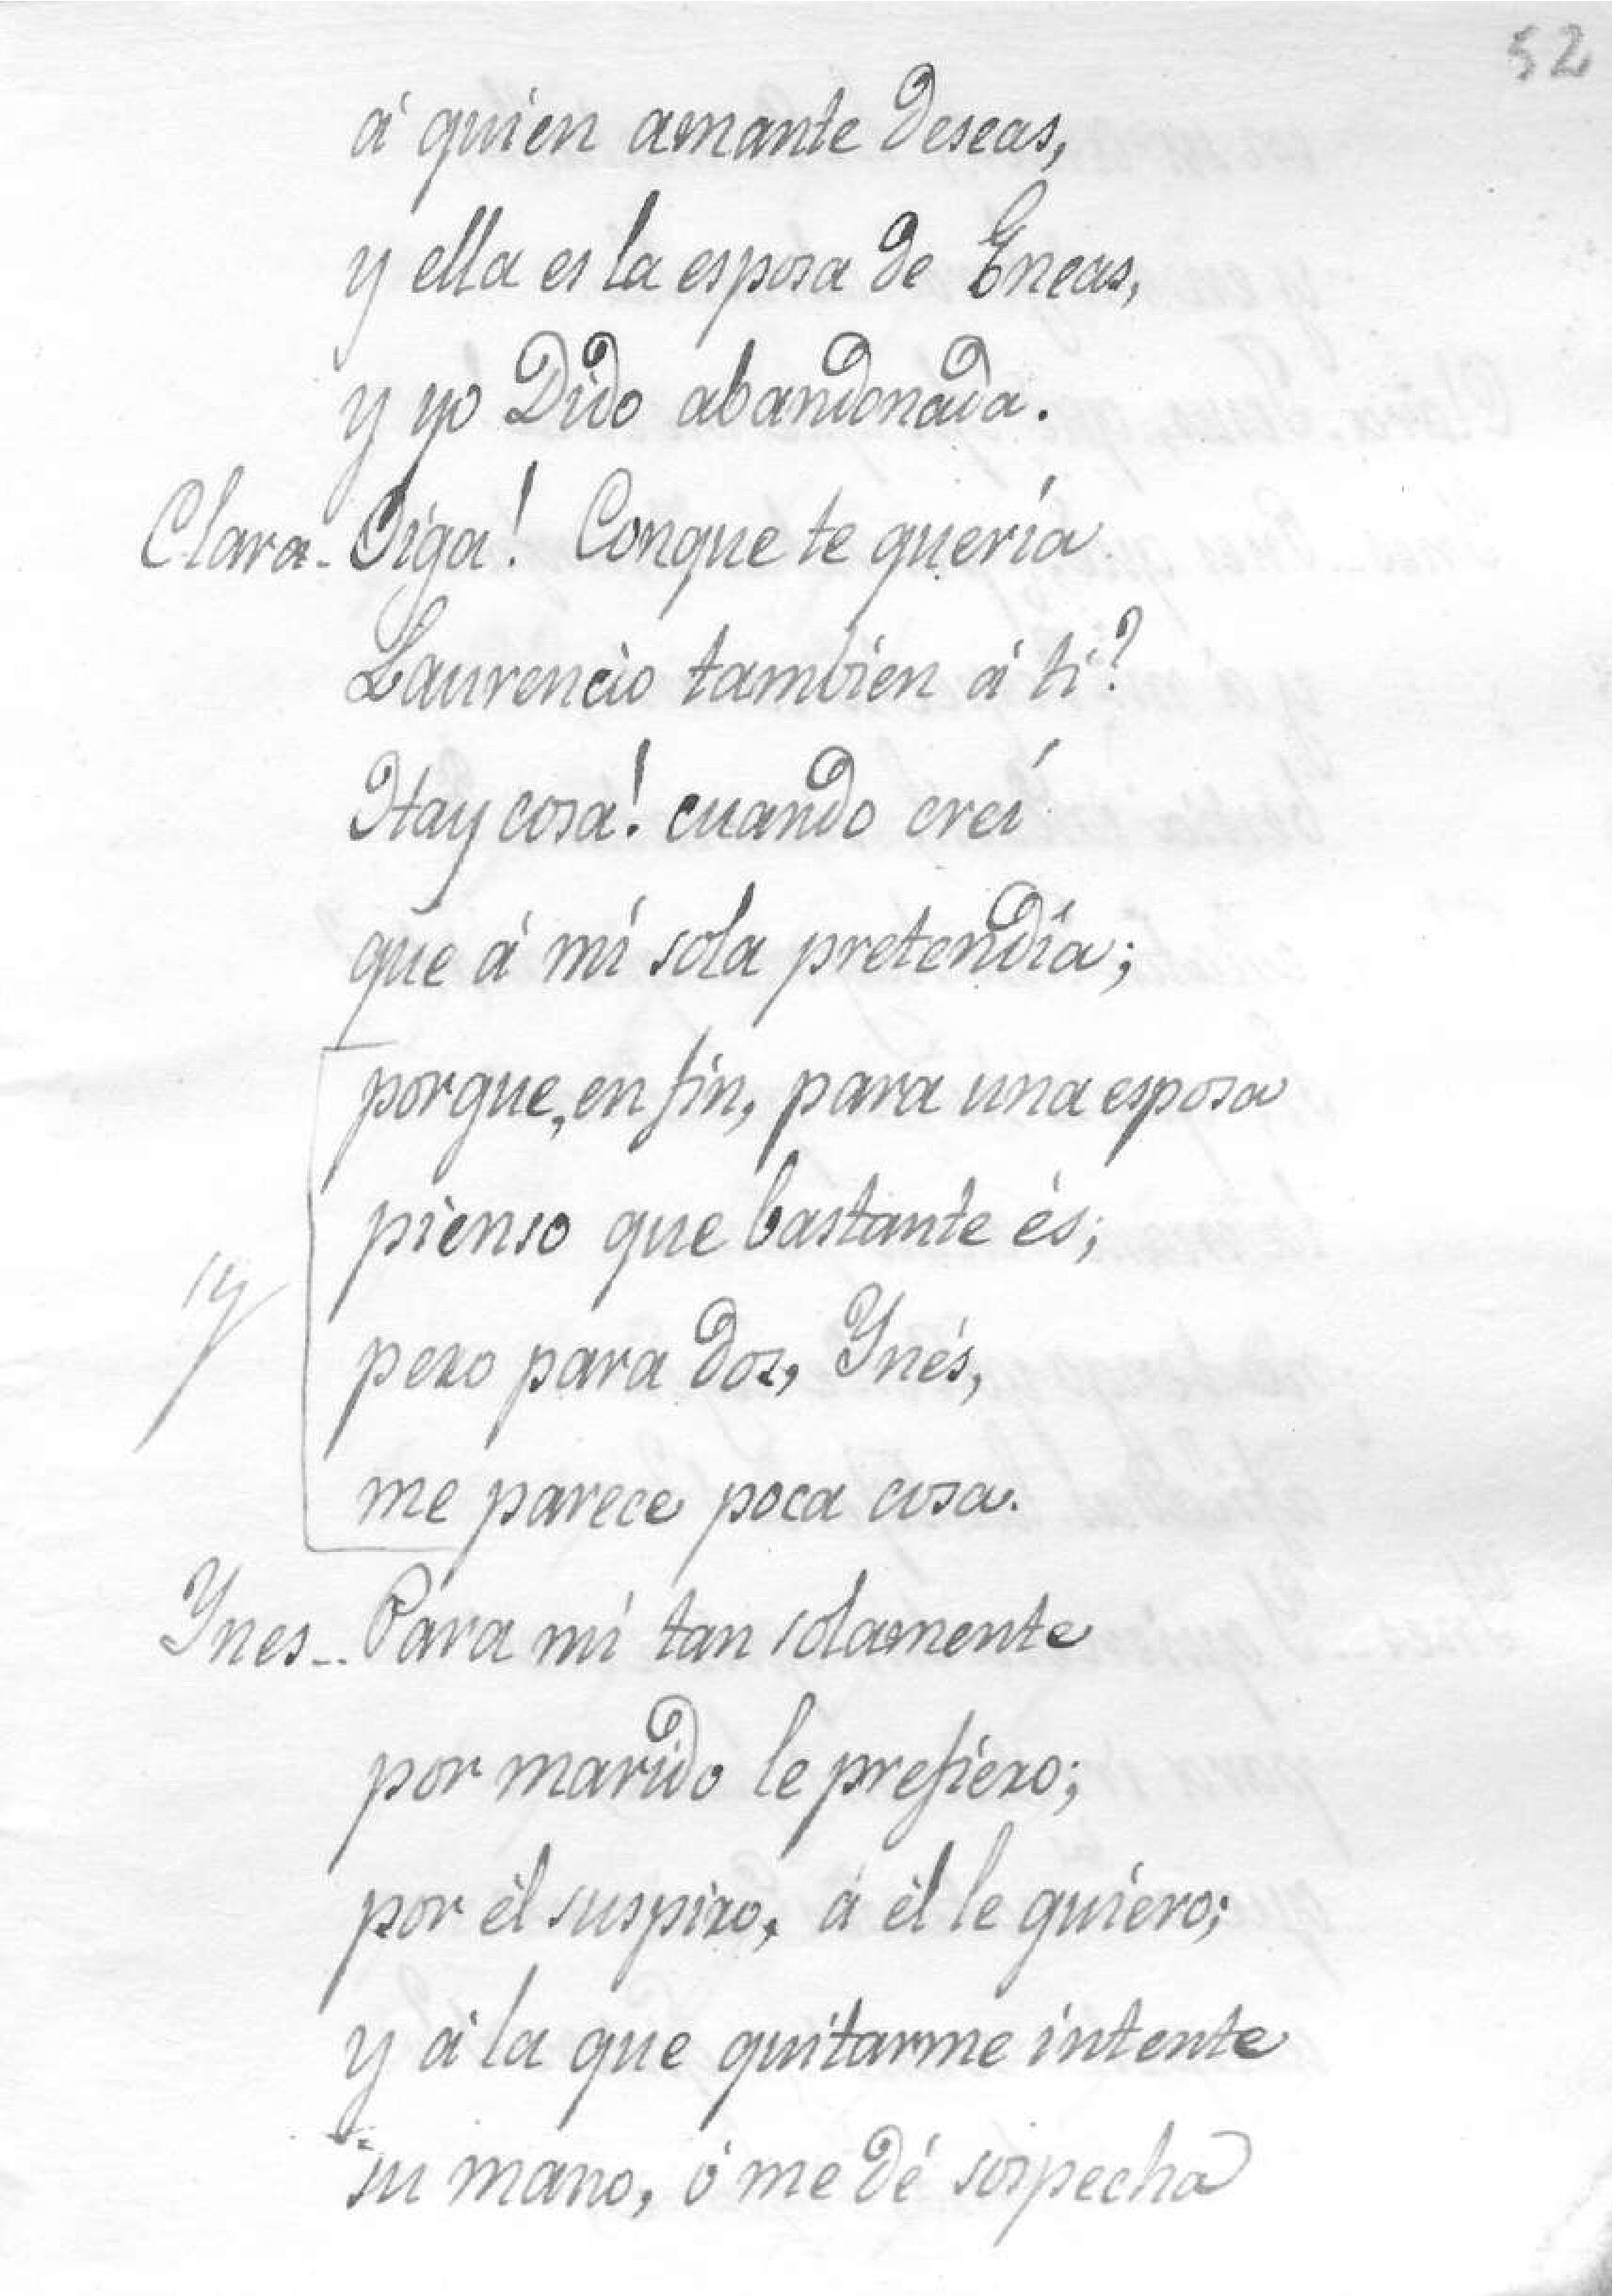 52
á quien amante deseas,
y ella es la esposa de Eneas,
y yo Dido abandonada.
Clara - Oiga! Conque te quería
Laurencio tambien á ti?
Hay cosa! cuando creí
que á mí sola pretendía;
porque, en fin, para una esposa
pienso que bastante és;
pero para dos, Ynés,
me parece poca cosa.
Ynes - Para mí tan solamente
por marido le prefiero;
por él suspiro, á él le quiero;
y á la que quitarme intente
su mano, ó me dé sospecha